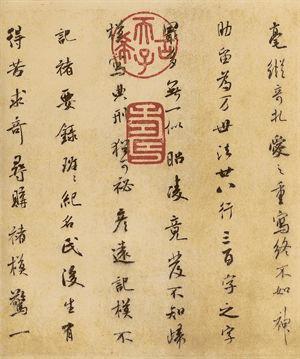 毫縱奇札愛之重寫終不如神
助留為万世法廿八行三百字之字
最多無一似昭陵竟發不知歸
模寫典刑猶可秘彦遠記模不
記褚要錄班〻紀名氏後生有
得苦求奇尋購褚模驚一
古希天子